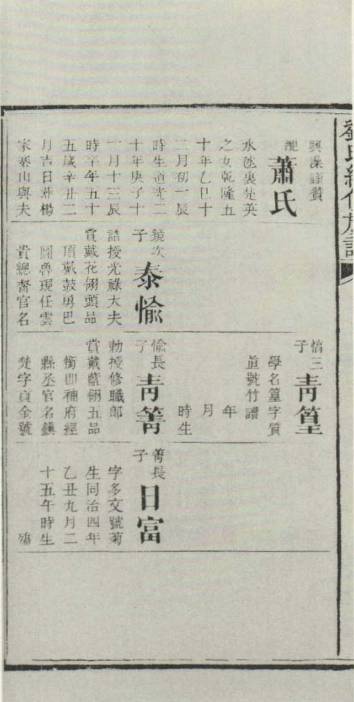 劉氏續修族譜
配 蕭氏
之女乾隆五
十年乙巳十
二月初一辰
時生道光二
十年庚子十
一月十三辰
時卒年五十
五歲辛丑二
月吉日葬楊
家寨山與夫
鏡次子 泰愉
誥授光祿大夫
賞戴花翎頭品
頂戴鼓勇巴
圖魯現任雲
貴總督官名
愼三子 青篁
學名篁字質
直號竹譜
年
月
時生
愉長子 青箐
勅授修職郎
賞戴藍翎五品
銜即補府經
縣丞官名鎮
楚字貞金號
箐長子 日富
字多文號菊
生同治四年
乙丑九月二
十五午時生
殤